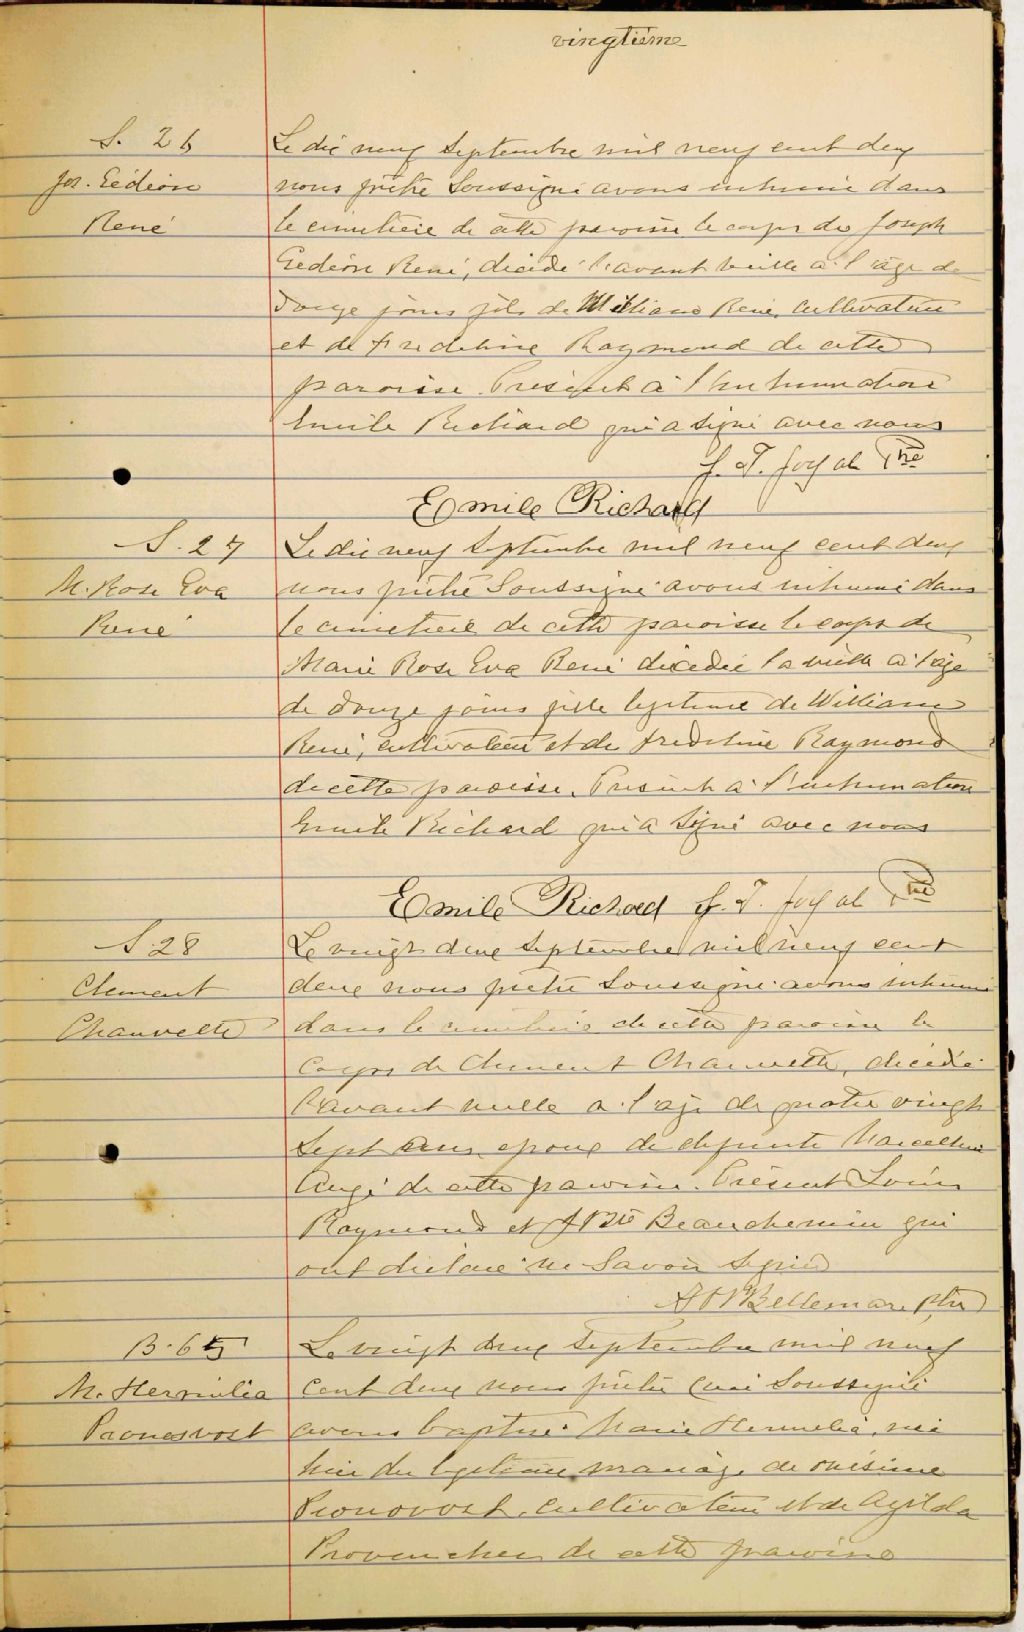 vingtième
S. 26
Jos. Gédéon
René
Le dix neuf Septembre mil neuf cent deux
nous prêtre Soussigné avons inhumé dans
le cimetière de cette paroisse le corps de Joseph
Gédéon René, décédé l'avant veille à l'âge de
douze jours fils de William René, cultivateur
et de Fredeline Raymond de cette
paroisse. Présent à l'inhumation
Emile Richard qui a signé avec nous
J. T. Joyal Ptre
Emile Richard
S. 27
M. Rose Eva
René
Le dix neuf Septembre mil neuf cent deux
nous prêtre Soussigné avons inhumé dans
le cimetière de cette paroisse le corps de
Marie Rose Eva René décédée la veille à l'âge
de douze jours fille légitime de William
René, cultivateur et de Fredeline Raymond
de cette paroisse. Présent à l'inhumation
Emile Richard qui a signé avec nous
Emile Richard J. T. Joyal Ptre
S. 28
Clement
Chauvette
Le vingt deux Septembre mil neuf cent
deux nous prêtre Soussigné avons inhumé
dans le cimetière de cette paroisse le
corps de Clement Chauvette, décédé
l'avant veille à l'âge de quatre vingt
sept ans, epoux de defunte Marcelline
Augé de cette paroisse. Présent Louis
Raymond et J Bte Beauchemin qui
ont déclaré ne savoir signer
Bellemare ptre
B. 65
M. Hermilia
Pronovost
Le vingt deux Septembre mil neuf
cent deux nous prêtre Curé Soussigné
avons baptisé Marie Hermelia, née
hier du légitime mariage de Onésime
Pronovost, cultivateur et de Agilda
Provencher de cette paroisse